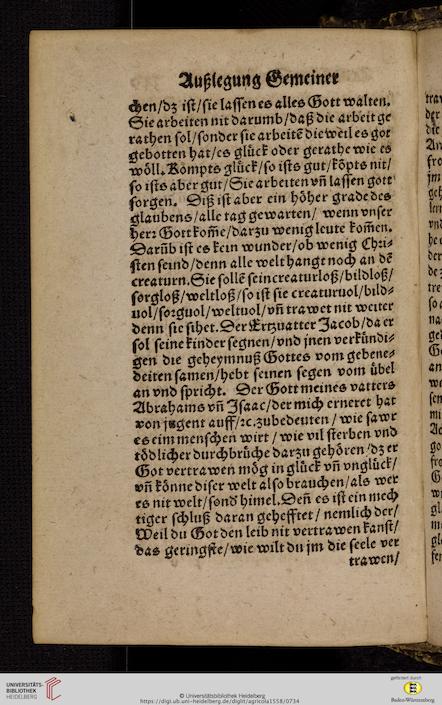 Außlegung Gemeiner
chen/dz ist/sie lassen es alles Gott walten.
Sie arbeiten nit darumb/daß die arbeit ge
rathen sol/sonder sie arbeitẽ die weil es got
gebotten hat/es glück oder gerathe wie es
wöll. Kompts glück/so ists gut/kõpts nit/
so ists aber gut/Sie arbeiten vñ lassen gott
sorgen. Diß ist aber ein höher grade des
glaubens/alle tag gewarten/ wenn vnser
herr Gott kom̃e/darzu wenig leute kom̃en.
Darũb ist es kein wunder/ob wenig Chri-
sten seind/denn alle welt hangt noch an dẽ
creaturn. Sie sollẽ sein creaturloß/bildloß/
sorgloß/weltloß/so ist sie creaturuol/bild-
uol/sorguol/weltuol/vñ trawet nit weiter
denn sie sihet. Der Ertzuatter Jacob/da er
sol seine kinder segnen/vnd jnen verkündi-
gen die geheymnuß Gottes vom gebene-
deiten samen/hebt seinen segen vom übel
an vnd spricht. Der Gott meines vatters
Abrahams vñ Isaac/der mich erneret hat
von jugent auff/ꝛc. zubedeuten/wie sawr
es eim menschen wirt/wie vil sterben vnd
tödlicher durchbrüche darzu gehören/dz er
Got vertrawen mög in glück vñ vnglück/
vñ könne diser welt also brauchen/als wer
es nit welt/sond himel. Deñ es ist ein mech
tiger schluß daran gehefftet/nemlich der/
Weil du Got den leib nit vertrawen kanst/
das geringste/wie wilt du jm die seele ver
trawen/
UNIVERSITÄTS-
BIBLIOTHEK
HEIDELBERG
© Universitätsbibliothek Heidelberg
https://digi.ub.uni-heidelberg.de/diglit/agricola1558/0734
gefördert durch
Baden-Württemberg